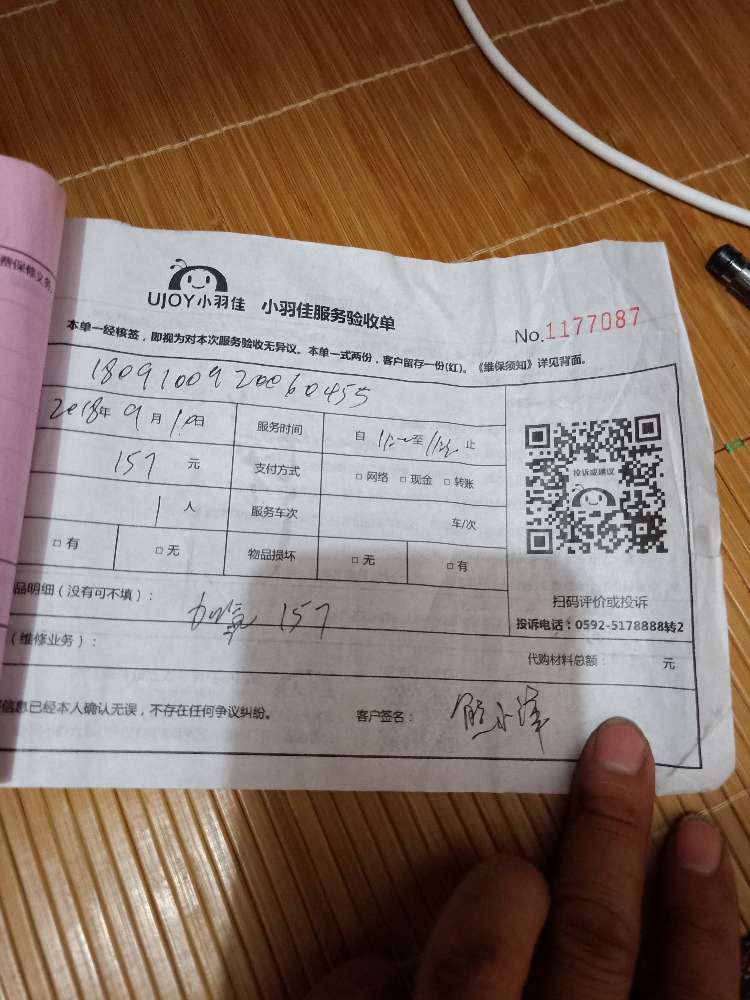 费保修义务
UJOY小羽佳 小羽佳服务验收单
No.1177087
本单一经核签，即视为对本次服务验收无异议。本单一式两份，客户留存一份(红)。《维保须知》详见背面。
1809100920060455
2018年 9月10日 服务时间 自 至 止
157 元 支付方式 □ 网络 □ 现金 □ 转账
投诉或建议
1 人 服务车次 车/次
□ 有 □ 无 物品损坏 □ 无 □ 有
扫码评价或投诉
投诉电话：0592-5178888转2
品明细（没有可不填）： 157
（维修业务）： 代购材料总额： 元
信息已经本人确认无误，不存在任何争议纠纷。 客户签名：